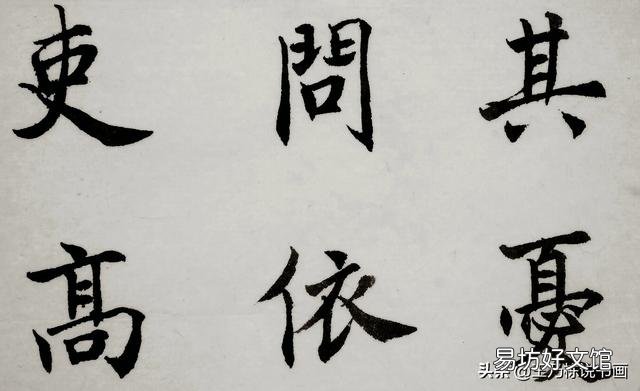 其憂
問依
吏髙
易坊好文馆
头条 说书画